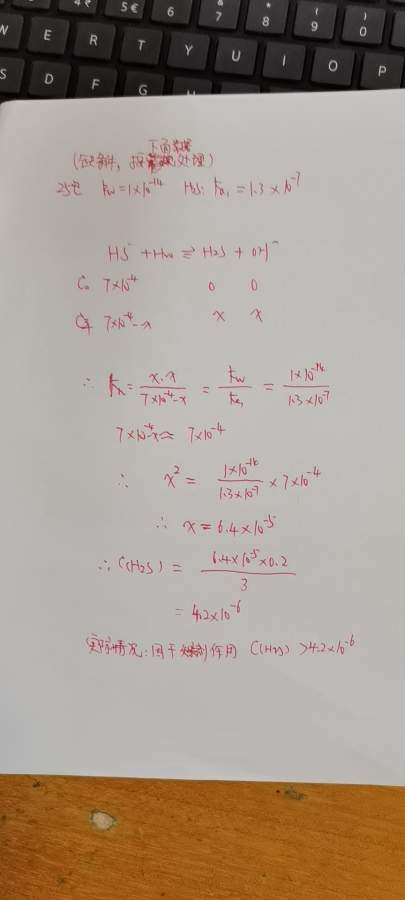 4 € 5 € 6 & 7 * 8 ( 9 ) 0
W E R T Y U I O P
S D F G
下面数据
(缺条件，按 处理)
25℃ Kw=1×10⁻¹⁴ H₂S: Ka₁=1.3×10⁻⁷
HS⁻+H₂O⇌H₂S+OH⁻
C₀ 7×10⁻⁴ 0 0
C平 7×10⁻⁴-x x x
∴ Kh= x·x / 7×10⁻⁴-x = Kw / Ka₁ = 1×10⁻¹⁴ / 1.3×10⁻⁷
7×10⁻⁴-x≈7×10⁻⁴
∴ x²= 1×10⁻¹⁴ / 1.3×10⁻⁷ ×7×10⁻⁴
∴ x=6.4×10⁻⁵
∴ C(H₂S)= 6.4×10⁻⁵×0.2 / 3
=4.2×10⁻⁶
实际情况: 由于 作用 C(H₂S)>4.2×10⁻⁶